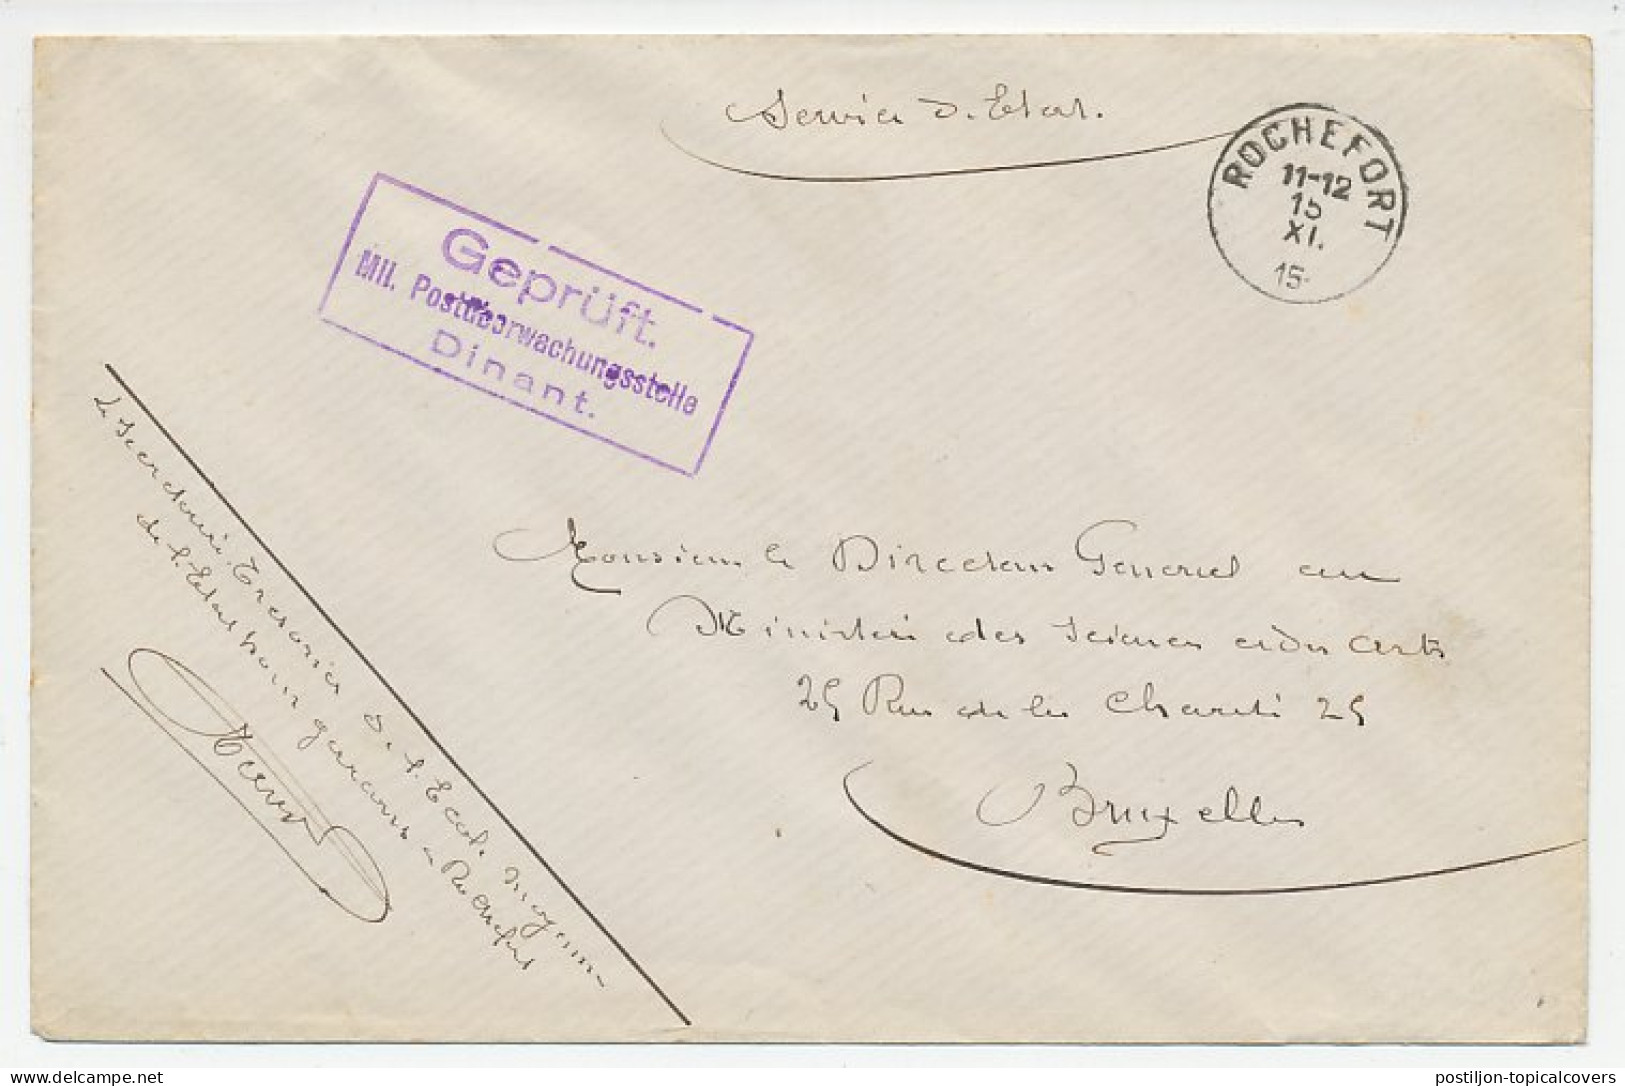 Service d'Etat.
ROCHEFORT
11-12
15
XI.
15
Geprüft.
Mil. Postüberwachungsstelle
Dinant.
Le Secrétaire Trésorier de l'Ecole moyenne
de l'Etat pour garçons à Rochefort
Monsieur le Directeur General au
Ministère des Sciences et des Arts
25 Rue de la Charité 25
Bruxelles
delcampe.net
postiljon-topicalcovers